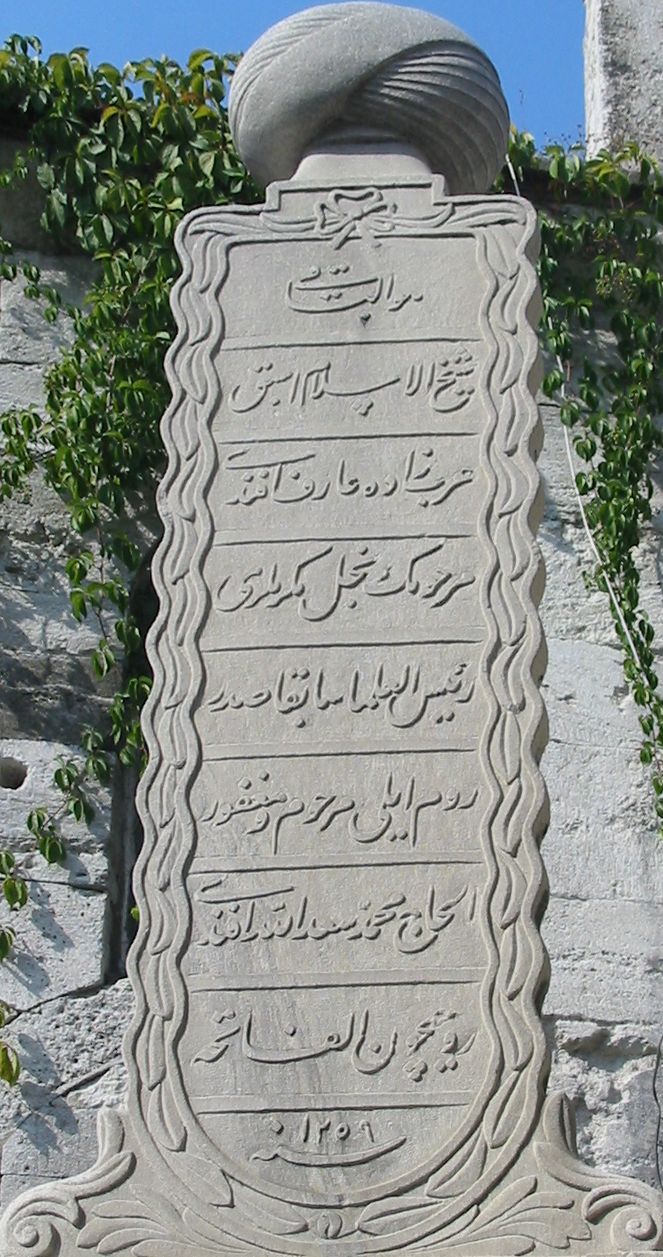 هو الباقی
شیخ الاسلام اسبق
عرب زاده عارف افندی
مرحومك نجل مکرملری
رئیس العلما سابقا صدر
روم ایلی مرحوم و مغفور
الحاج محمد سعد الله افندی
روحیچون الفاتحه
سنه ١٢٥٩